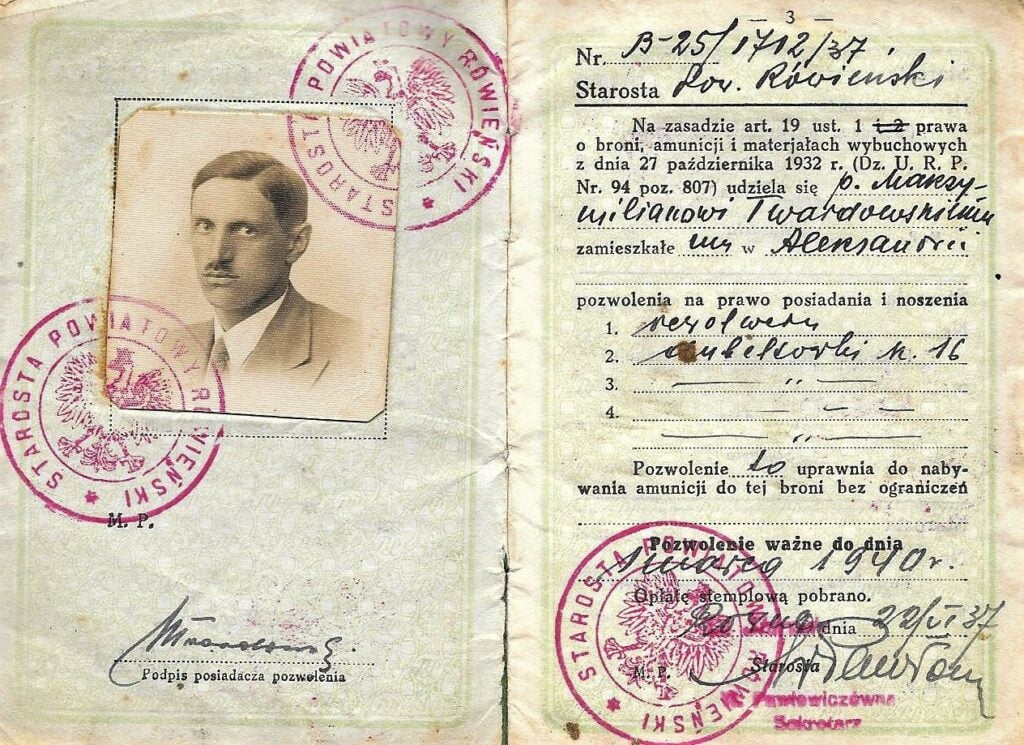 STAROSTA POWIATOWY RÓWIEŃSKI
STAROSTA POWIATOWY RÓWIEŃSKI
M. P.
Podpis posiadacza pozwolenia
— 3 —
Nr. B-25/1712/37
Starosta Pow. Rówieński
Na zasadzie art. 19 ust. 1 i 2 prawa
o broni, amunicji i materjałach wybuchowych
z dnia 27 października 1932 r. (Dz. U. R. P.
Nr. 94 poz. 807) udziela się p. Maksy-
milianowi Twardowskiemu
zamieszkałemu w Aleksandrii
pozwolenia na prawo posiadania i noszenia
1. rewolweru
2. dubeltówki k. 16
3. — „ —
4. — - -
— „ —
Pozwolenie to uprawnia do naby-
wania amunicji do tej broni bez ograniczeń
Pozwolenie ważne do dnia
marca 1940 r.
Opłatę stemplową pobrano.
Równe dnia 22/VI 37
M. P. Starosta
Pawłowiczówna
Sekretarz
STAROSTA POWIATOWY RÓWIEŃSKI